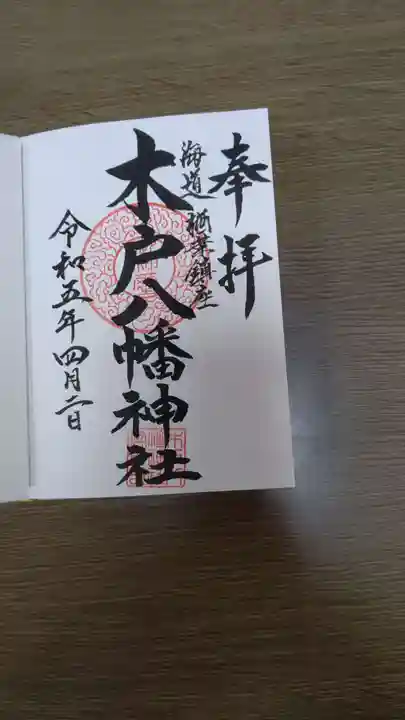 奉拝
海道 楢葉鎮社
木戸八幡神社
令和五年四月二日